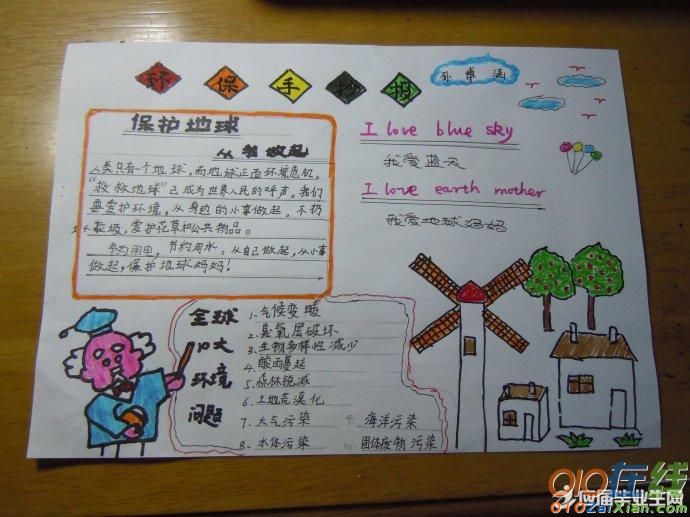 环保手抄报
孙博涵
保护地球
从我做起
人类只有一个地球,而地球正面环境危机。
“救救地球”已成为世界人民的呼声。我们
要爱护环境,从身边的小事做起。不扔
垃圾,爱护花草和公共物品。
节约用电,节约用水。从自己做起,从小事
做起,保护地球妈妈!
I love blue sky
我爱蓝天
I love earth mother
我爱地球妈妈
全球
十大
环境
问题
1.气候变暖
2.臭氧层破坏
3.生物多样性减少
4.酸雨蔓延
5.森林锐减
6.土地荒漠化
7.大气污染
8.水体污染
9.海洋污染
10.固体废物污染
010在线
应届毕业生网
010zaixian.com